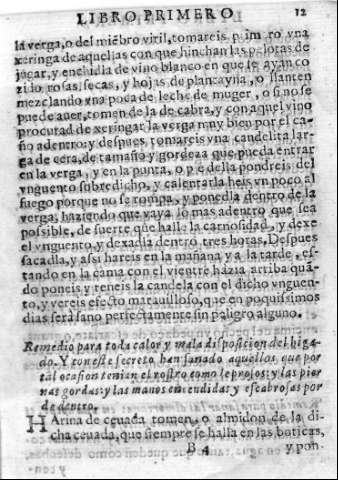 LIBRO PRIMERO 12
la verga, o del miẽbro viril, tomareis prim ro vna
xeringa de aquellas con que hinchan las pelotas de
jugar, y enchidla de vino blanco en que se ayan co
zido, rosas, secas, y hojas de plantayna, o llanten
mezclando vna poca de leche de muger, o si no se
puede auer, tomen de la de cabra, y con aquel vino
procurad de xeringar la verga muy bien por el ca-
ño adentro: y despues tomareis vna candelita lar-
ga de cera, de tamaño y gordeza que pueda entrar
en la verga, y en la punta, o pie della pondreis del
vnguento subredicho, y calentarla heis vn poco al
fuego porque no se rompa, y ponedla dentro de la
verga, haziendo que vaya lo mas adentro que sea
possible, de suerte que halle la carnosidad, y dexe
el vnguento, y dexadla dentro tres horas, Despues
sacadla, y assi hareis en la mañana y a la tarde, es-
tando en la cama con el vientre házia arriba quã-
do poneis y teneis la candela con el dicho vnguen-
to, y vereis efecto marauilloso, que en poquissimos
dias sera sano perfectamente sin peligro alguno.
Remedio para toda calor y mala disposicion del higa-
do. Y con este secreto han sanado aquellos, que por
tal ocasion tenian el rostro como leprosos: y las pier
nas gordas: y las manos encendidas y escabrosas por
de dentro.
HArina de ceuada tomen, o almidon de la di-
cha ceuada, que siempre se halla en las boticas,
B 4 y pon-